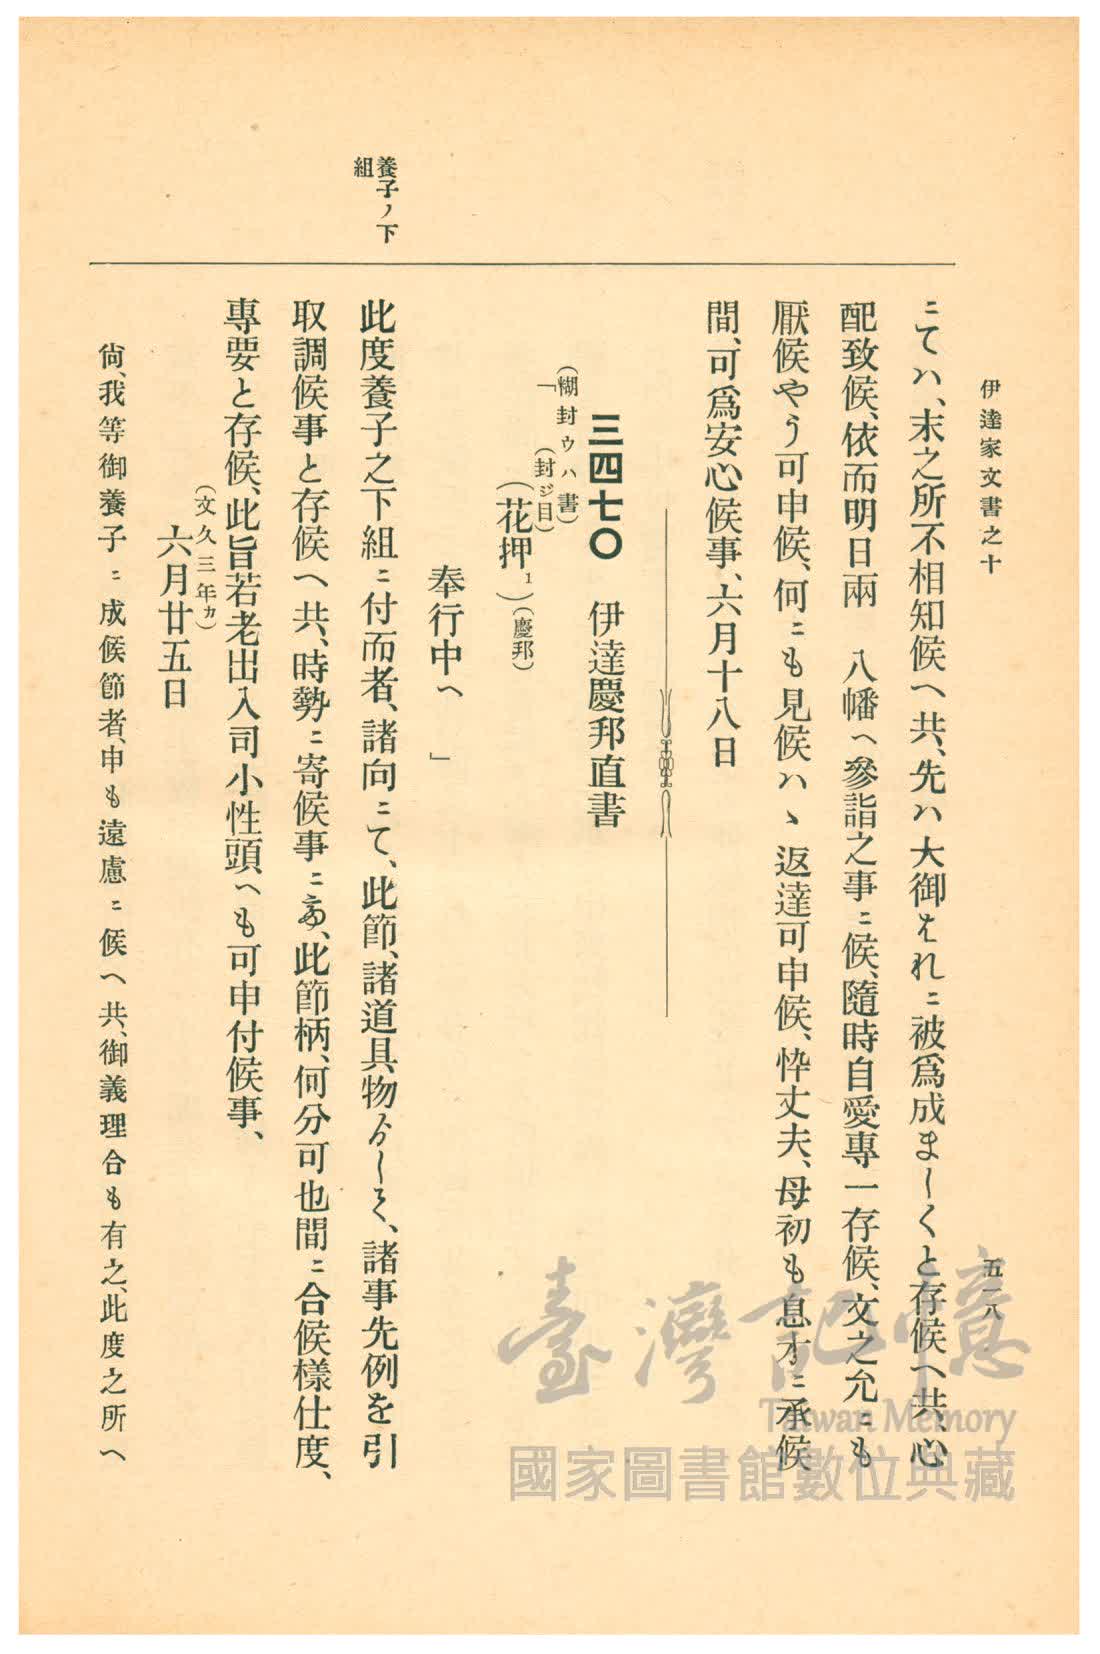 伊達家文書之十
五一八
ニてハ、末之所不相知候へ共、先ハ大御はれニ被爲成ましくと存候へ共、心
配致候、依而明日兩　八幡へ參詣之事ニ候、隨時自愛專一存候、文之允ニも
厭候やう可申候、何ニも見候ハヽ返達可申候、忰丈夫、母初も息才ニ承候
間、可爲安心候事、六月十八日
三四七〇　伊達慶邦直書
(糊封ウハ書)
「(封ジ目)
(花押1)(慶邦)
奉行中へ　」
養子ノ下
組
此度養子之下組ニ付而者、諸向ニて、此節、諸道具物らしく、諸事先例を引
取調候事と存候へ共、時勢ニ寄候事ニ而、此節柄、何分可也間ニ合候樣仕度、
專要と存候、此旨若老出入司小性頭へも可申付候事、
(文久三年カ)
六月廿五日
尙、我等御養子ニ成候節者、申も遠慮ニ候へ共、御義理合も有之、此度之所へ
臺灣記憶
Taiwan Memory
國家圖書館數位典藏